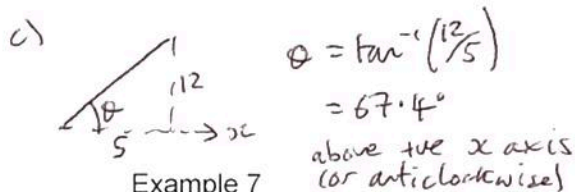 c)
θ = tan⁻¹(12/5)
12
= 67.4°
θ
5
x
above +ve x axis
(or anticlockwise)
Example 7